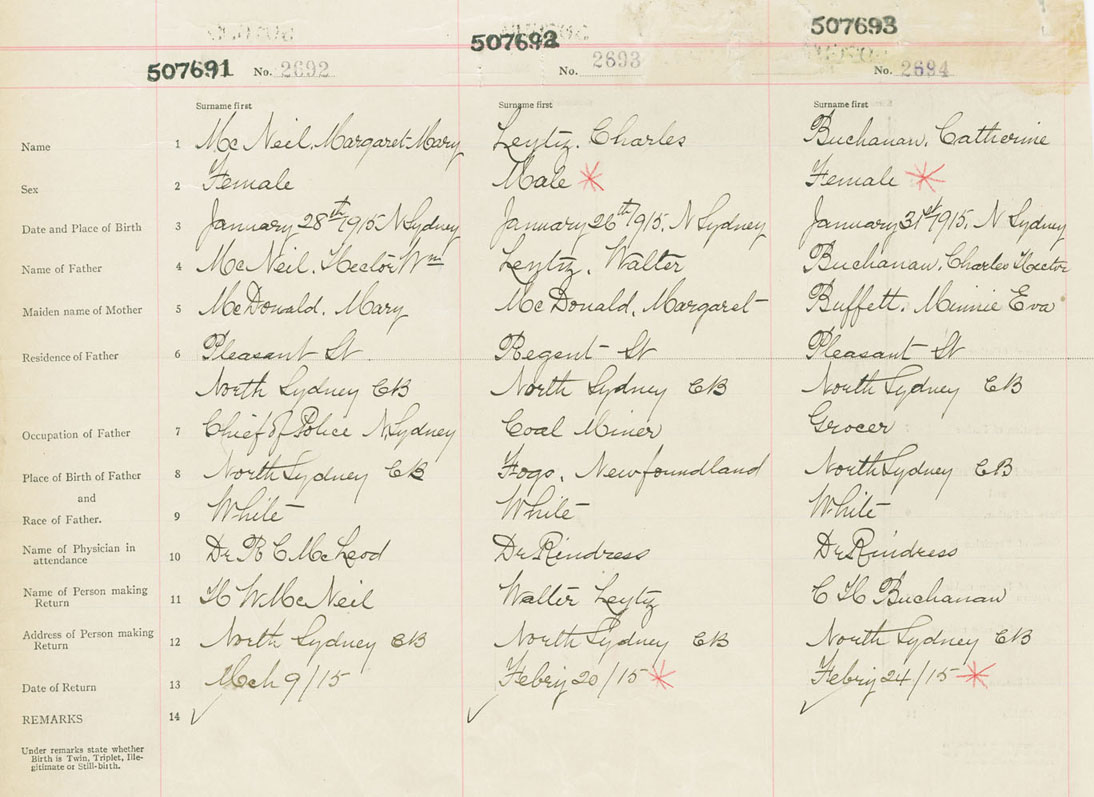 507691 No. 2692
507692 No. 2693
507693 No. 2694
Surname first Surname first Surname first
Name 1 McNeil, Margaret Mary Leytiz, Charles Buchanan, Catherine
Sex 2 Female Male Female
Date and Place of Birth 3 January 28th 1915 N Sydney January 26th 1915, N Sydney January 31st 1915, N Sydney
Name of Father 4 McNeil, Hector Wm Leytiz, Walter Buchanan, Charles Hector
Maiden name of Mother 5 McDonald, Mary McDonald, Margaret Buffett, Minnie Eva
Residence of Father 6 Pleasant St Regent St Pleasant St
North Sydney CB North Sydney CB North Sydney CB
Occupation of Father 7 Chief of Police N. Sydney Coal Miner Grocer
Place of Birth of Father 8 North Sydney CB Fogo, Newfoundland North Sydney CB
and
Race of Father. 9 White White White
Name of Physician in
attendance 10 Dr R C McLeod Dr Rindress Dr Rindress
Name of Person making
Return 11 H W McNeil Walter Leytiz C H Buchanan
Address of Person making
Return 12 North Sydney CB North Sydney CB North Sydney CB
Date of Return 13 Mch 9/15 Febry 20/15 Febry 24/15
REMARKS 14
Under remarks state whether
Birth is Twin, Triplet, Ille-
gitimate or Still-birth.